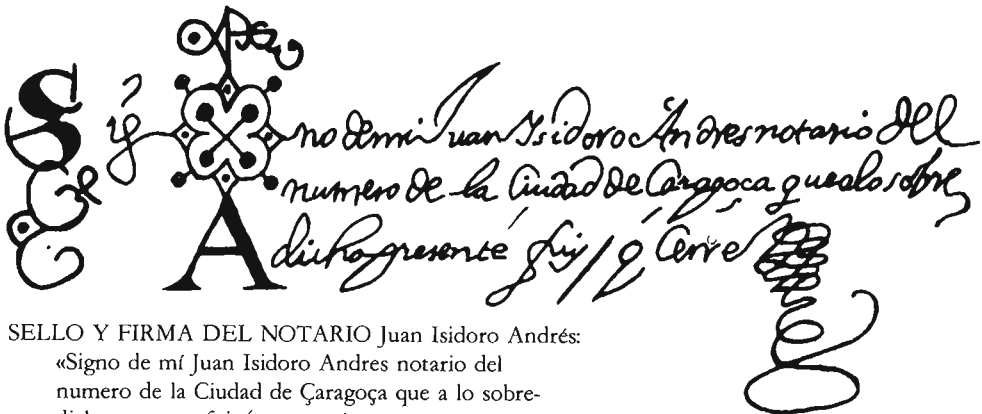 Sig no de mi Juan Isidoro Andres notario del
numero de la Ciudad de Caragoça que a lo sobre
dicho presente fuy / y Cerre
SELLO Y FIRMA DEL NOTARIO Juan Isidoro Andrés:
«Signo de mí Juan Isidoro Andres notario del
numero de la Ciudad de Çaragoça que a lo sobre-